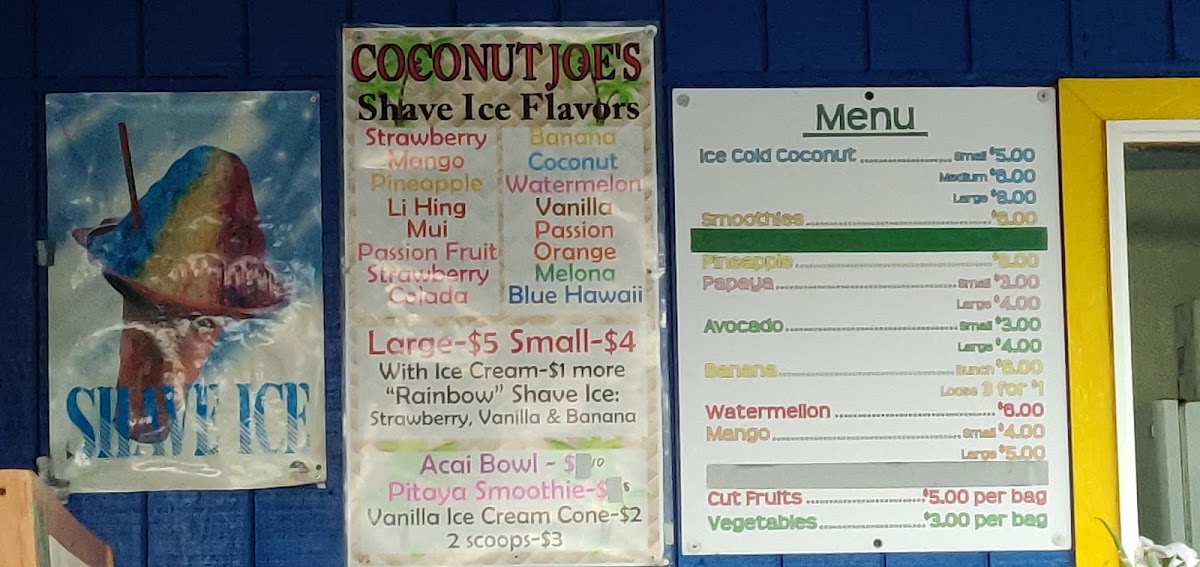 SHAVE ICE
COCONUT JOE'S
Shave Ice Flavors
Strawberry
Mango
Pineapple
Li Hing
Mui
Passion Fruit
Strawberry
Colada
Banana
Coconut
Watermelon
Vanilla
Passion
Orange
Melona
Blue Hawaii
Large-$5 Small-$4
With Ice Cream-$1 more
"Rainbow" Shave Ice:
Strawberry, Vanilla & Banana
Acai Bowl - $10
Pitaya Smoothie-$8
Vanilla Ice Cream Cone-$2
2 scoops-$3
Menu
Ice Cold Coconut ........ Small $5.00
Medium $6.00
Large $8.00
Smoothies ........ $6.00
Pineapple ........ $6.00
Papaya ........ Small $3.00
Large $4.00
Avocado ........ Small $3.00
Large $4.00
Banana ........ Bunch $6.00
Loose 3 for $1
Watermellon ........ $6.00
Mango ........ Small $4.00
Large $5.00
Cut Fruits ........ $5.00 per bag
Vegetables ........ $3.00 per bag